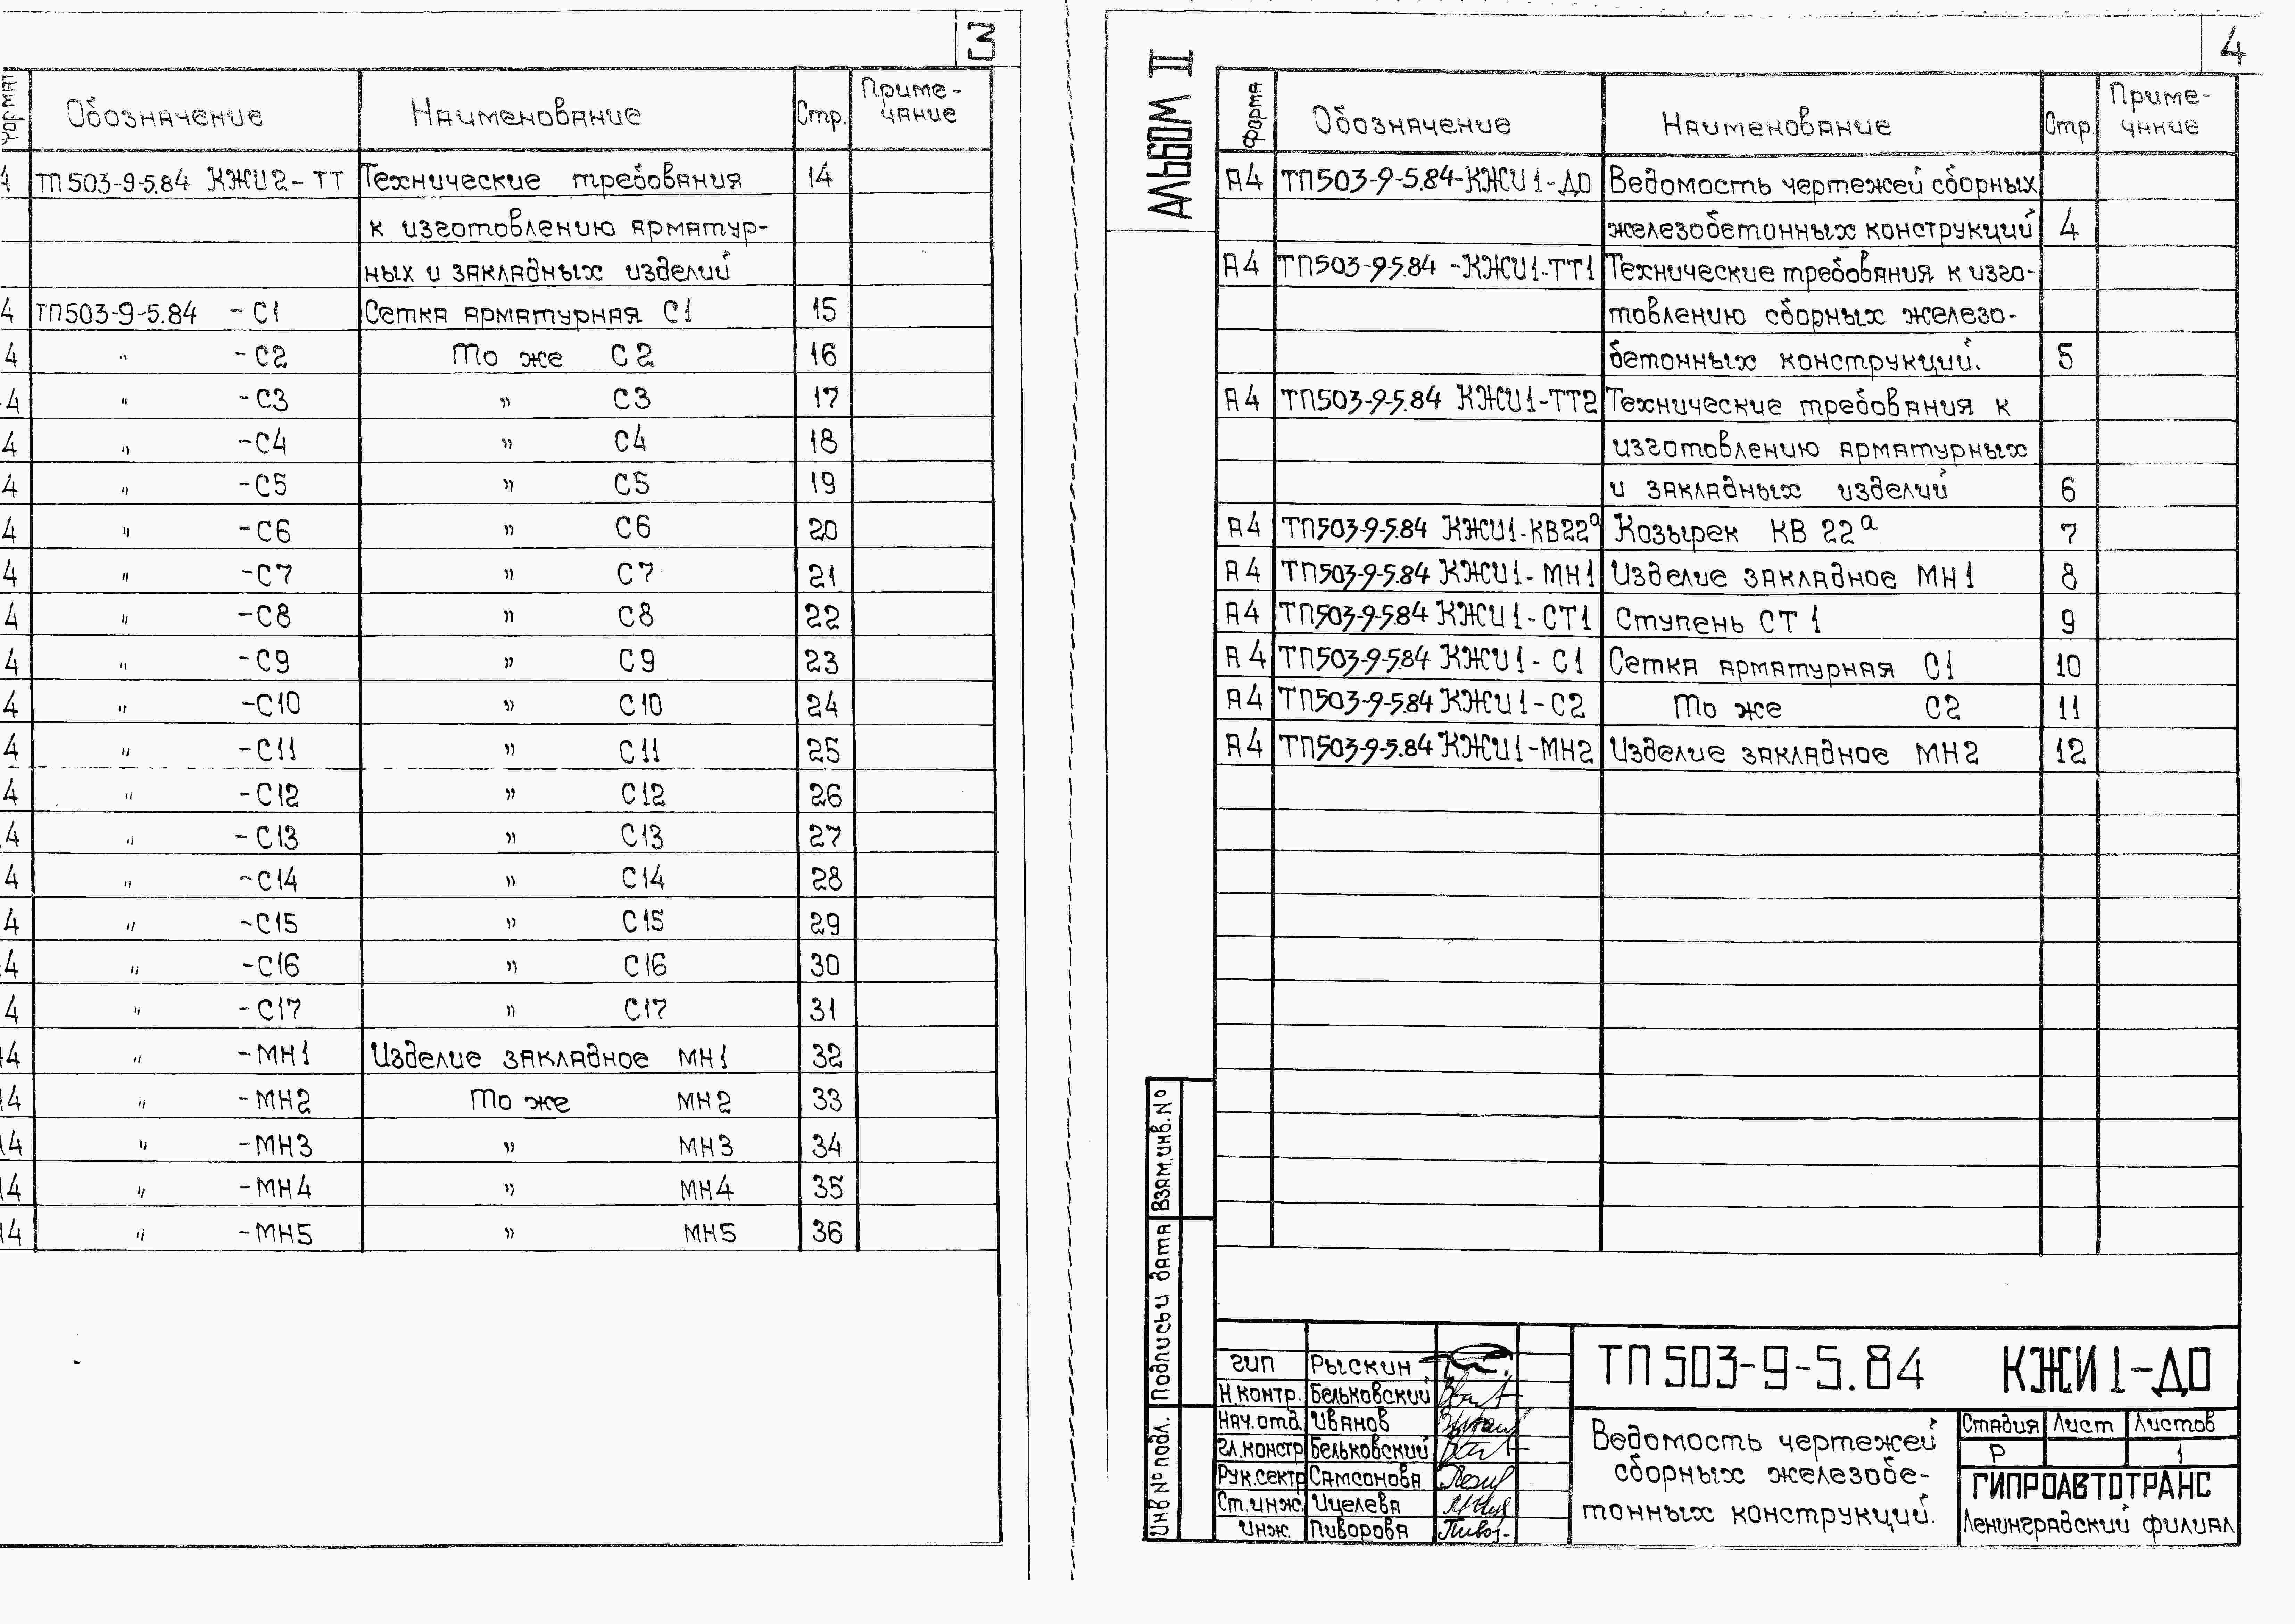 3
Формат Обозначение Наименование Стр. Приме-
чание
4 ТП 503-9-5.84 КЖИ2-ТТ Технические требования 14
к изготовлению арматур-
ных и закладных изделий
4 ТП503-9-5.84 -С1 Сетка арматурная С1 15
4 " -С2 То же С2 16
4 " -С3 " С3 17
4 " -С4 " С4 18
4 " -С5 " С5 19
4 " -С6 " С6 20
4 " -С7 " С7 21
4 " -С8 " С8 22
4 " -С9 " С9 23
4 " -С10 " С10 24
4 " -С11 " С11 25
4 " -С12 " С12 26
4 " -С13 " С13 27
4 " -С14 " С14 28
4 " -С15 " С15 29
4 " -С16 " С16 30
4 " -С17 " С17 31
4 " -МН1 Изделие закладное МН1 32
4 " -МН2 То же МН2 33
4 " -МН3 " МН3 34
4 " -МН4 " МН4 35
4 " -МН5 " МН5 36
4
Альбом II
Форма Обозначение Наименование Стр. Приме-
чание
А4 ТП503-9-5.84-КЖИ1-ДО Ведомость чертежей сборных
железобетонных конструкций 4
А4 ТП503-9-5.84 -КЖИ1-ТТ1 Технические требования к изго-
товлению сборных железо-
бетонных конструкций. 5
А4 ТП503-9-5.84 КЖИ1-ТТ2 Технические требования к
изготовлению арматурных
и закладных изделий 6
А4 ТП503-9-5.84 КЖИ1-КВ22а Козырек КВ 22а 7
А4 ТП503-9-5.84 КЖИ1-МН1 Изделие закладное МН1 8
А4 ТП503-9-5.84 КЖИ1-СТ1 Ступень СТ1 9
А4 ТП503-9-5.84 КЖИ1-С1 Сетка арматурная С1 10
А4 ТП503-9-5.84 КЖИ1-С2 То же С2 11
А4 ТП503-9-5.84 КЖИ1-МН2 Изделие закладное МН2 12
Взам.инв.№
Подпись и дата
Инв № подл.
ГИП Рыскин
Н.контр. Бельковский
Нач.отд. Иванов
Гл.констр Бельковский
Рук.сектр Самсонова
Ст.инж. Ицелева
Инж. Пиворова
ТП 503-9-5.84 КЖИ1-ДО
Ведомость чертежей
сборных железобе-
тонных конструкций.
Стадия Лист Листов
Р 1
ГИПРОАВТОТРАНС
Ленинградский филиал